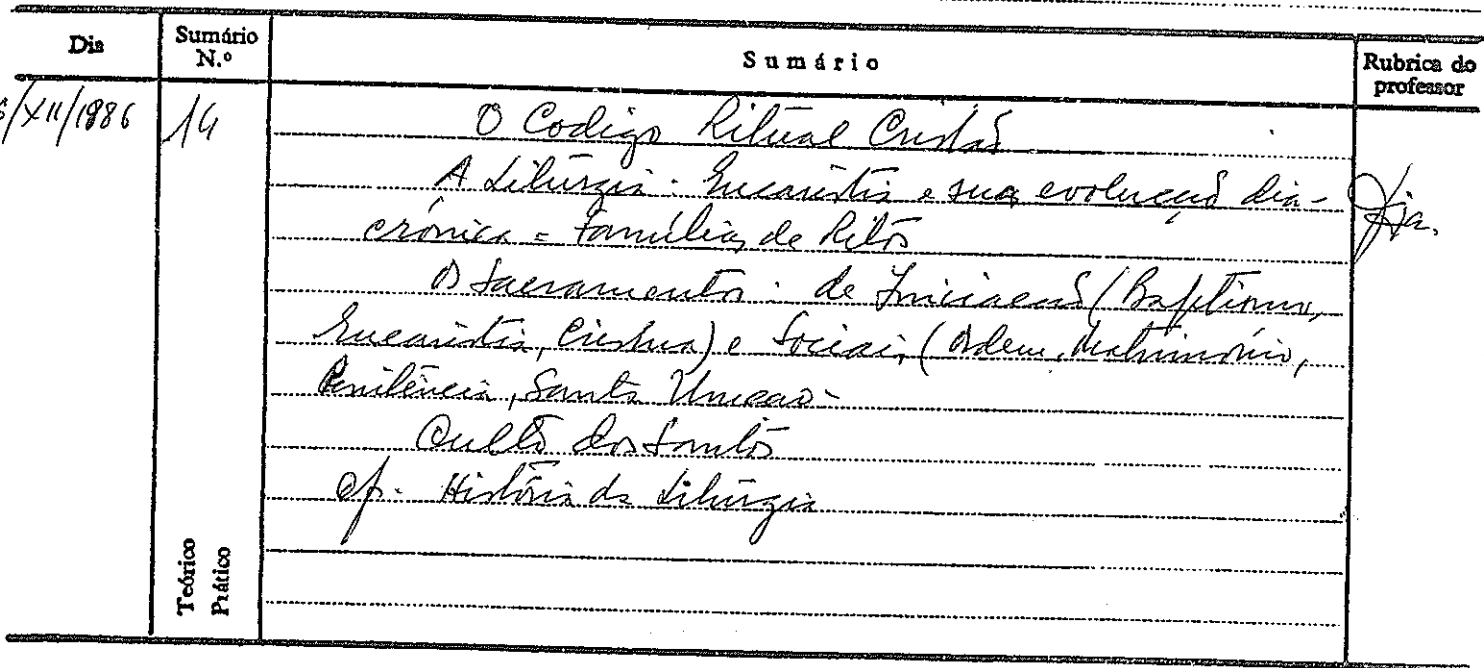 Dia Sumário N.º Sumário Rubrica do professor
6/XII/1986 14 O Codigo Ritual Cristão
A Liturgia: Eucaristia e sua evolução dia-
crónica = Famílias de Ritos
Os Sacramentos: de Iniciação (Baptismo,
Eucaristia, Crisma) e Sociais (Ordem, Matrimónio,
Penitência, Santa Unção-
Culto dos Santos
cf. História da Liturgia
Teórico
Prático